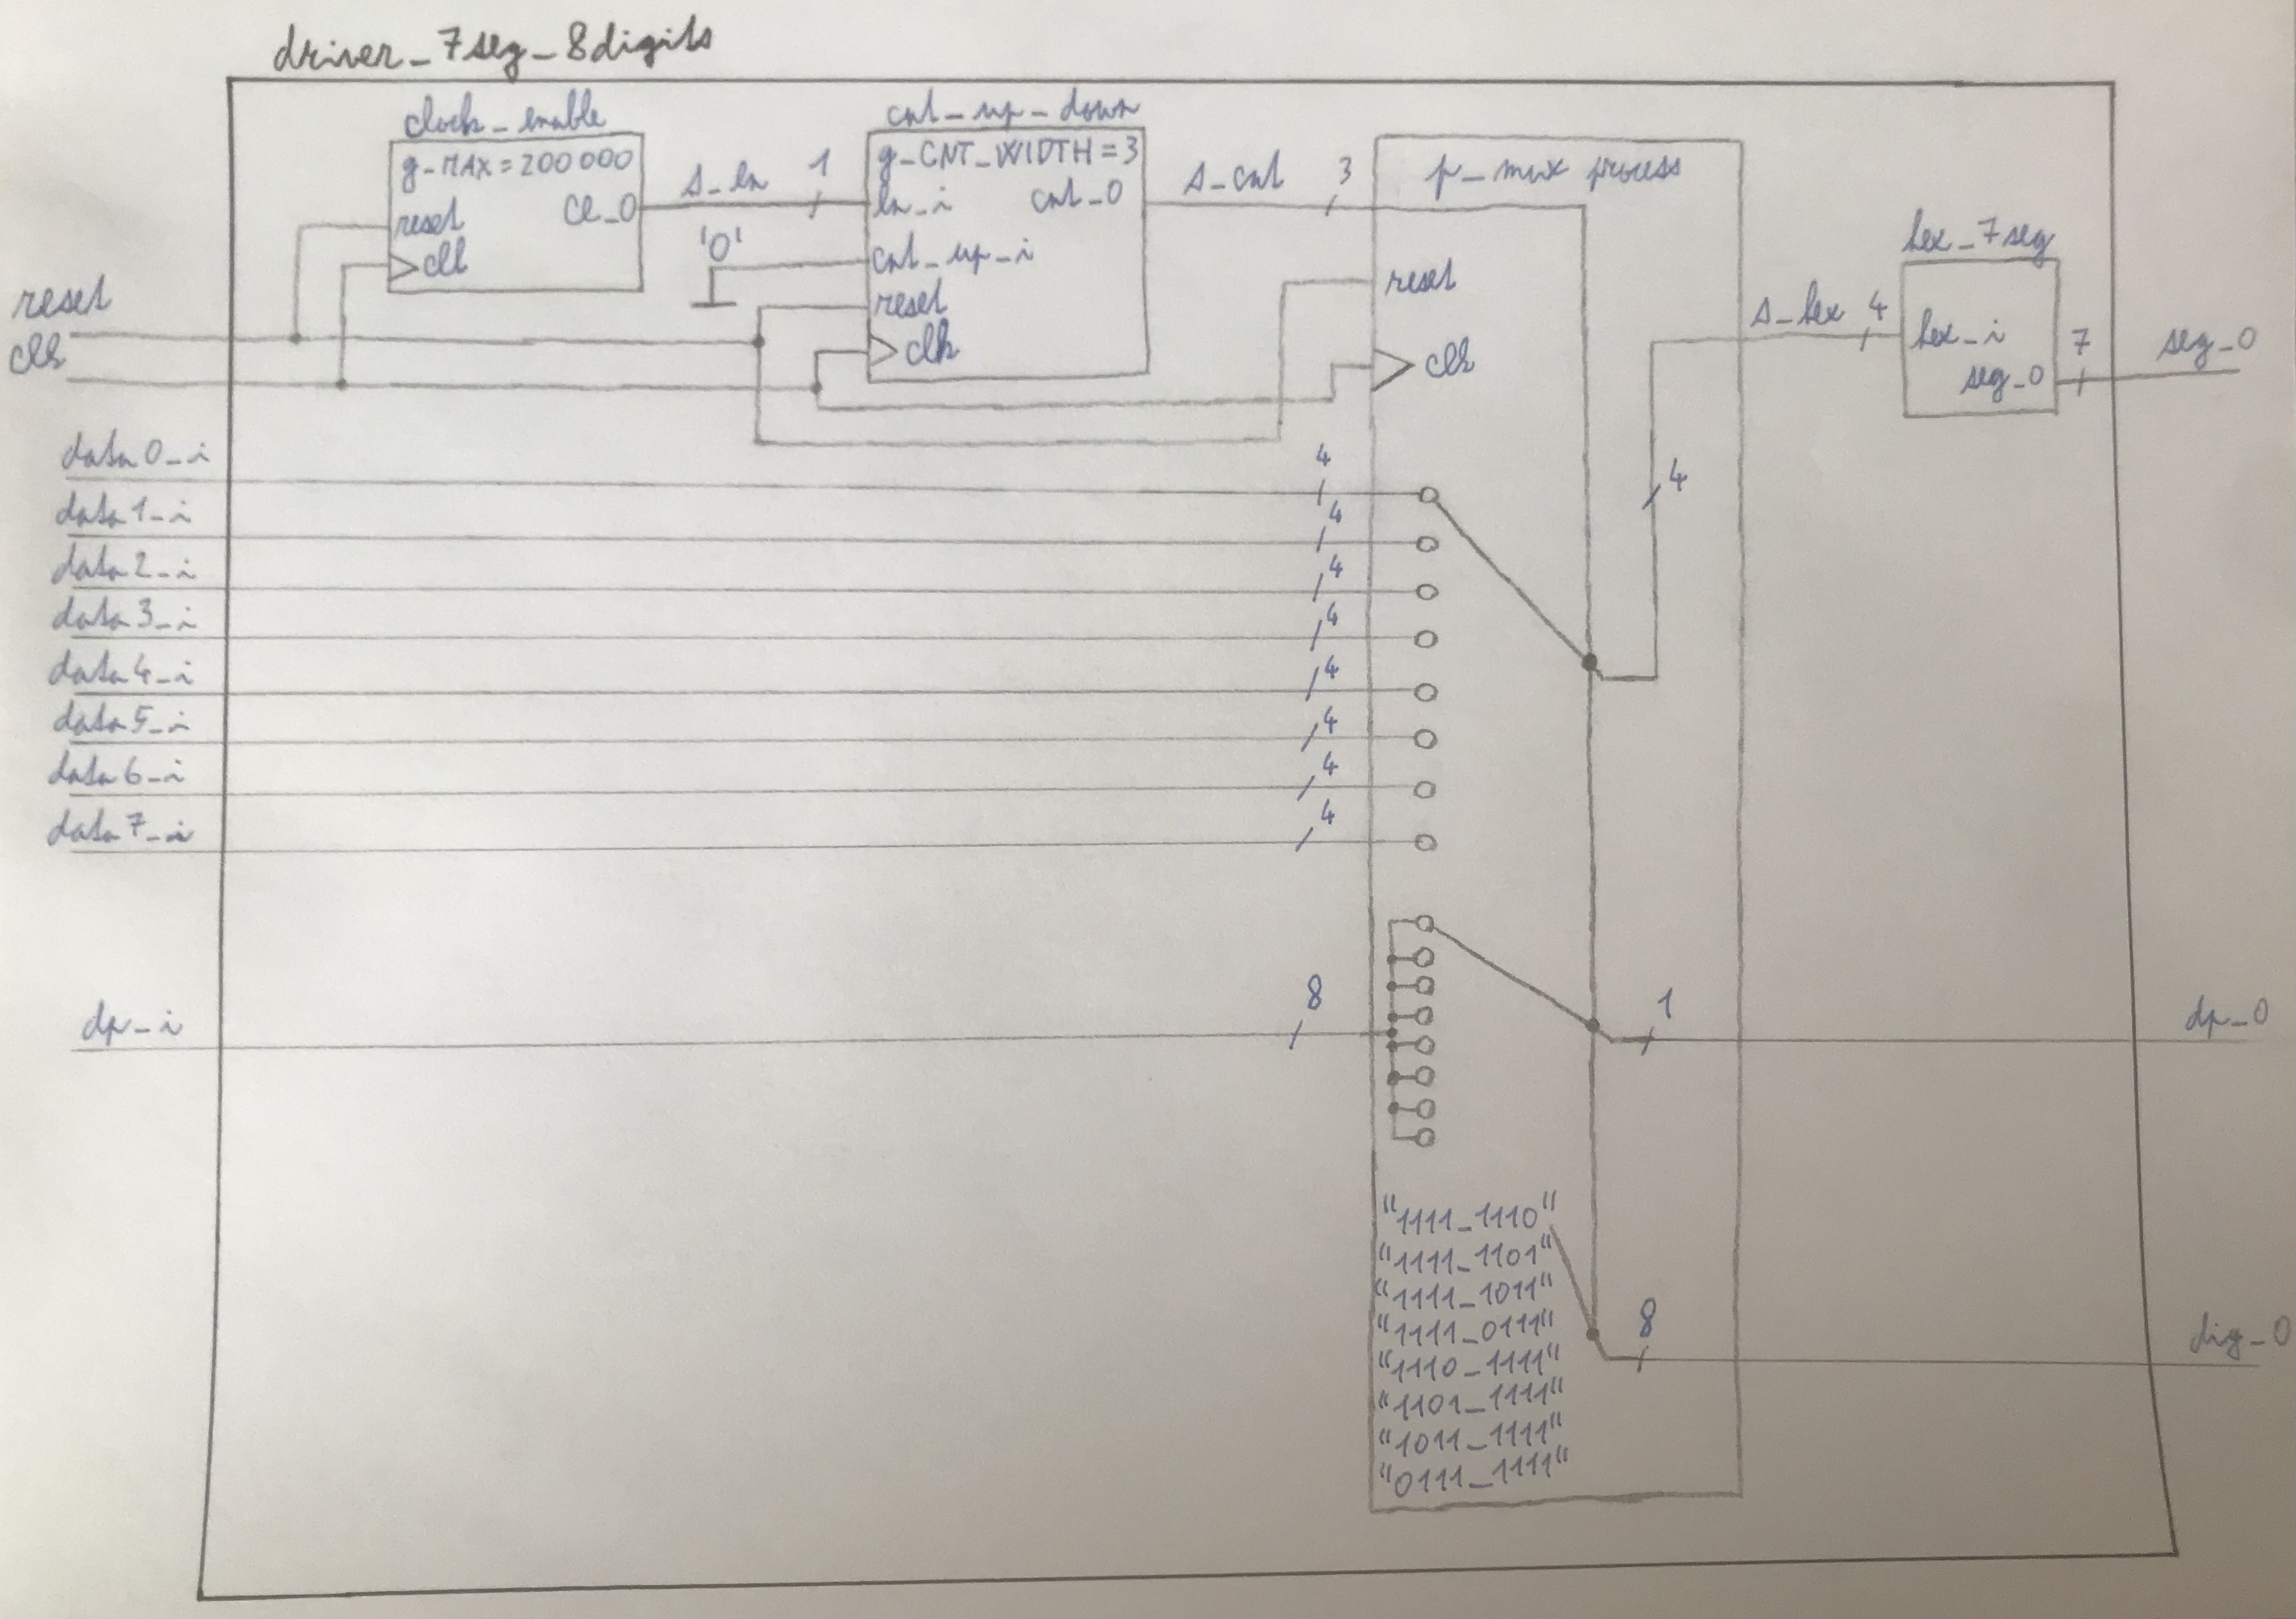 driver_7seg_8digits
clock_enable
g_MAX = 200 000
reset
ce_o
clk
s_en
1
cnt_up_down
g_CNT_WIDTH = 3
en_i
cnt_o
'0'
cnt_up_i
reset
clk
s_cnt
3
p_mux process
reset
clk
hex_7seg
s_hex
4
hex_i
seg_o
7
seg_o
reset
clk
data0_i
4
data1_i
4
data2_i
4
data3_i
4
data4_i
4
data5_i
4
data6_i
4
data7_i
4
4
dp_i
8
1
dp_o
"1111_1110"
"1111_1101"
"1111_1011"
"1111_0111"
"1110_1111"
"1101_1111"
"1011_1111"
"0111_1111"
8
dig_o